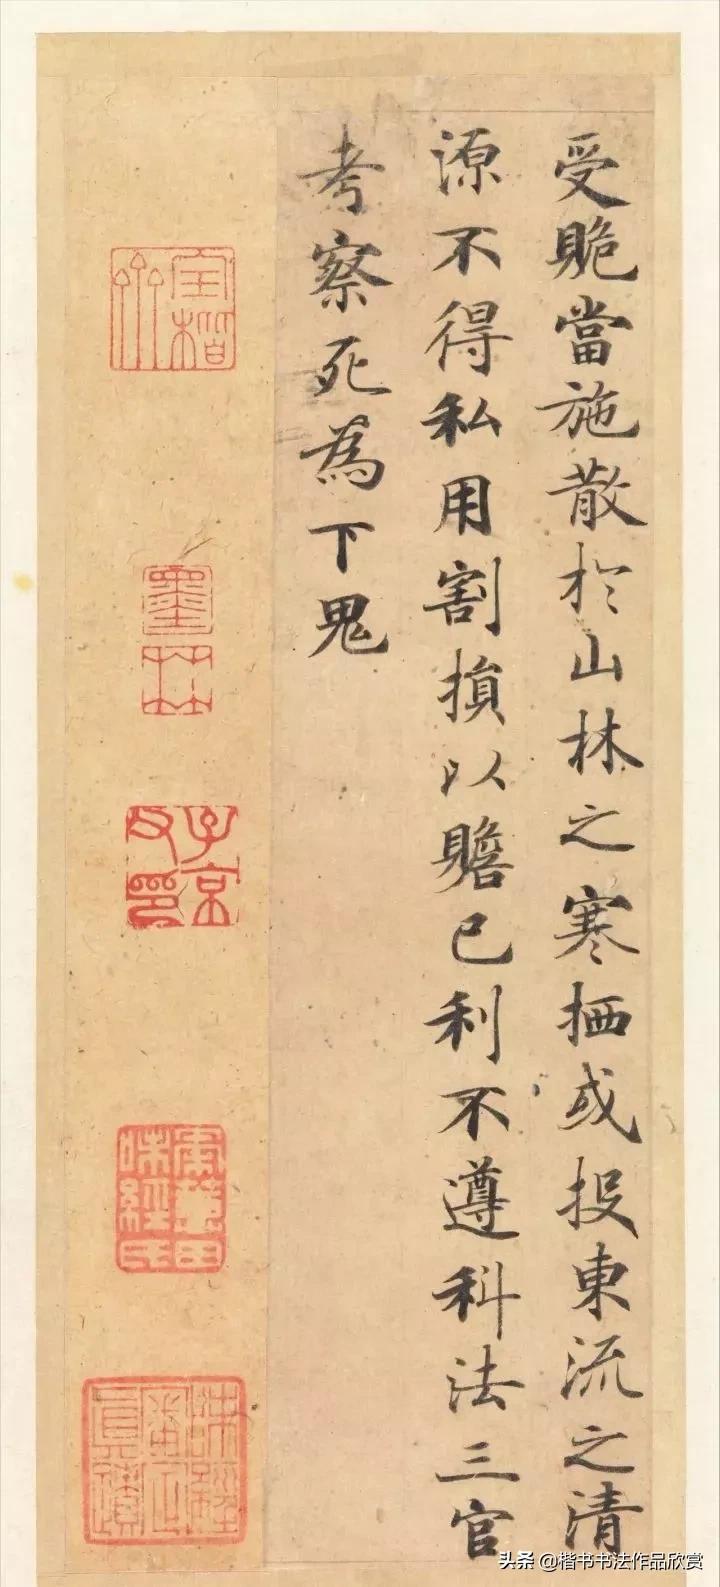 受䞈當施散於山林之寒栖或投東流之清
源不得私用割損以贍已利不遵科法三官
考察死為下鬼
墨林
子京父印
头条 @楷书书法作品欣赏